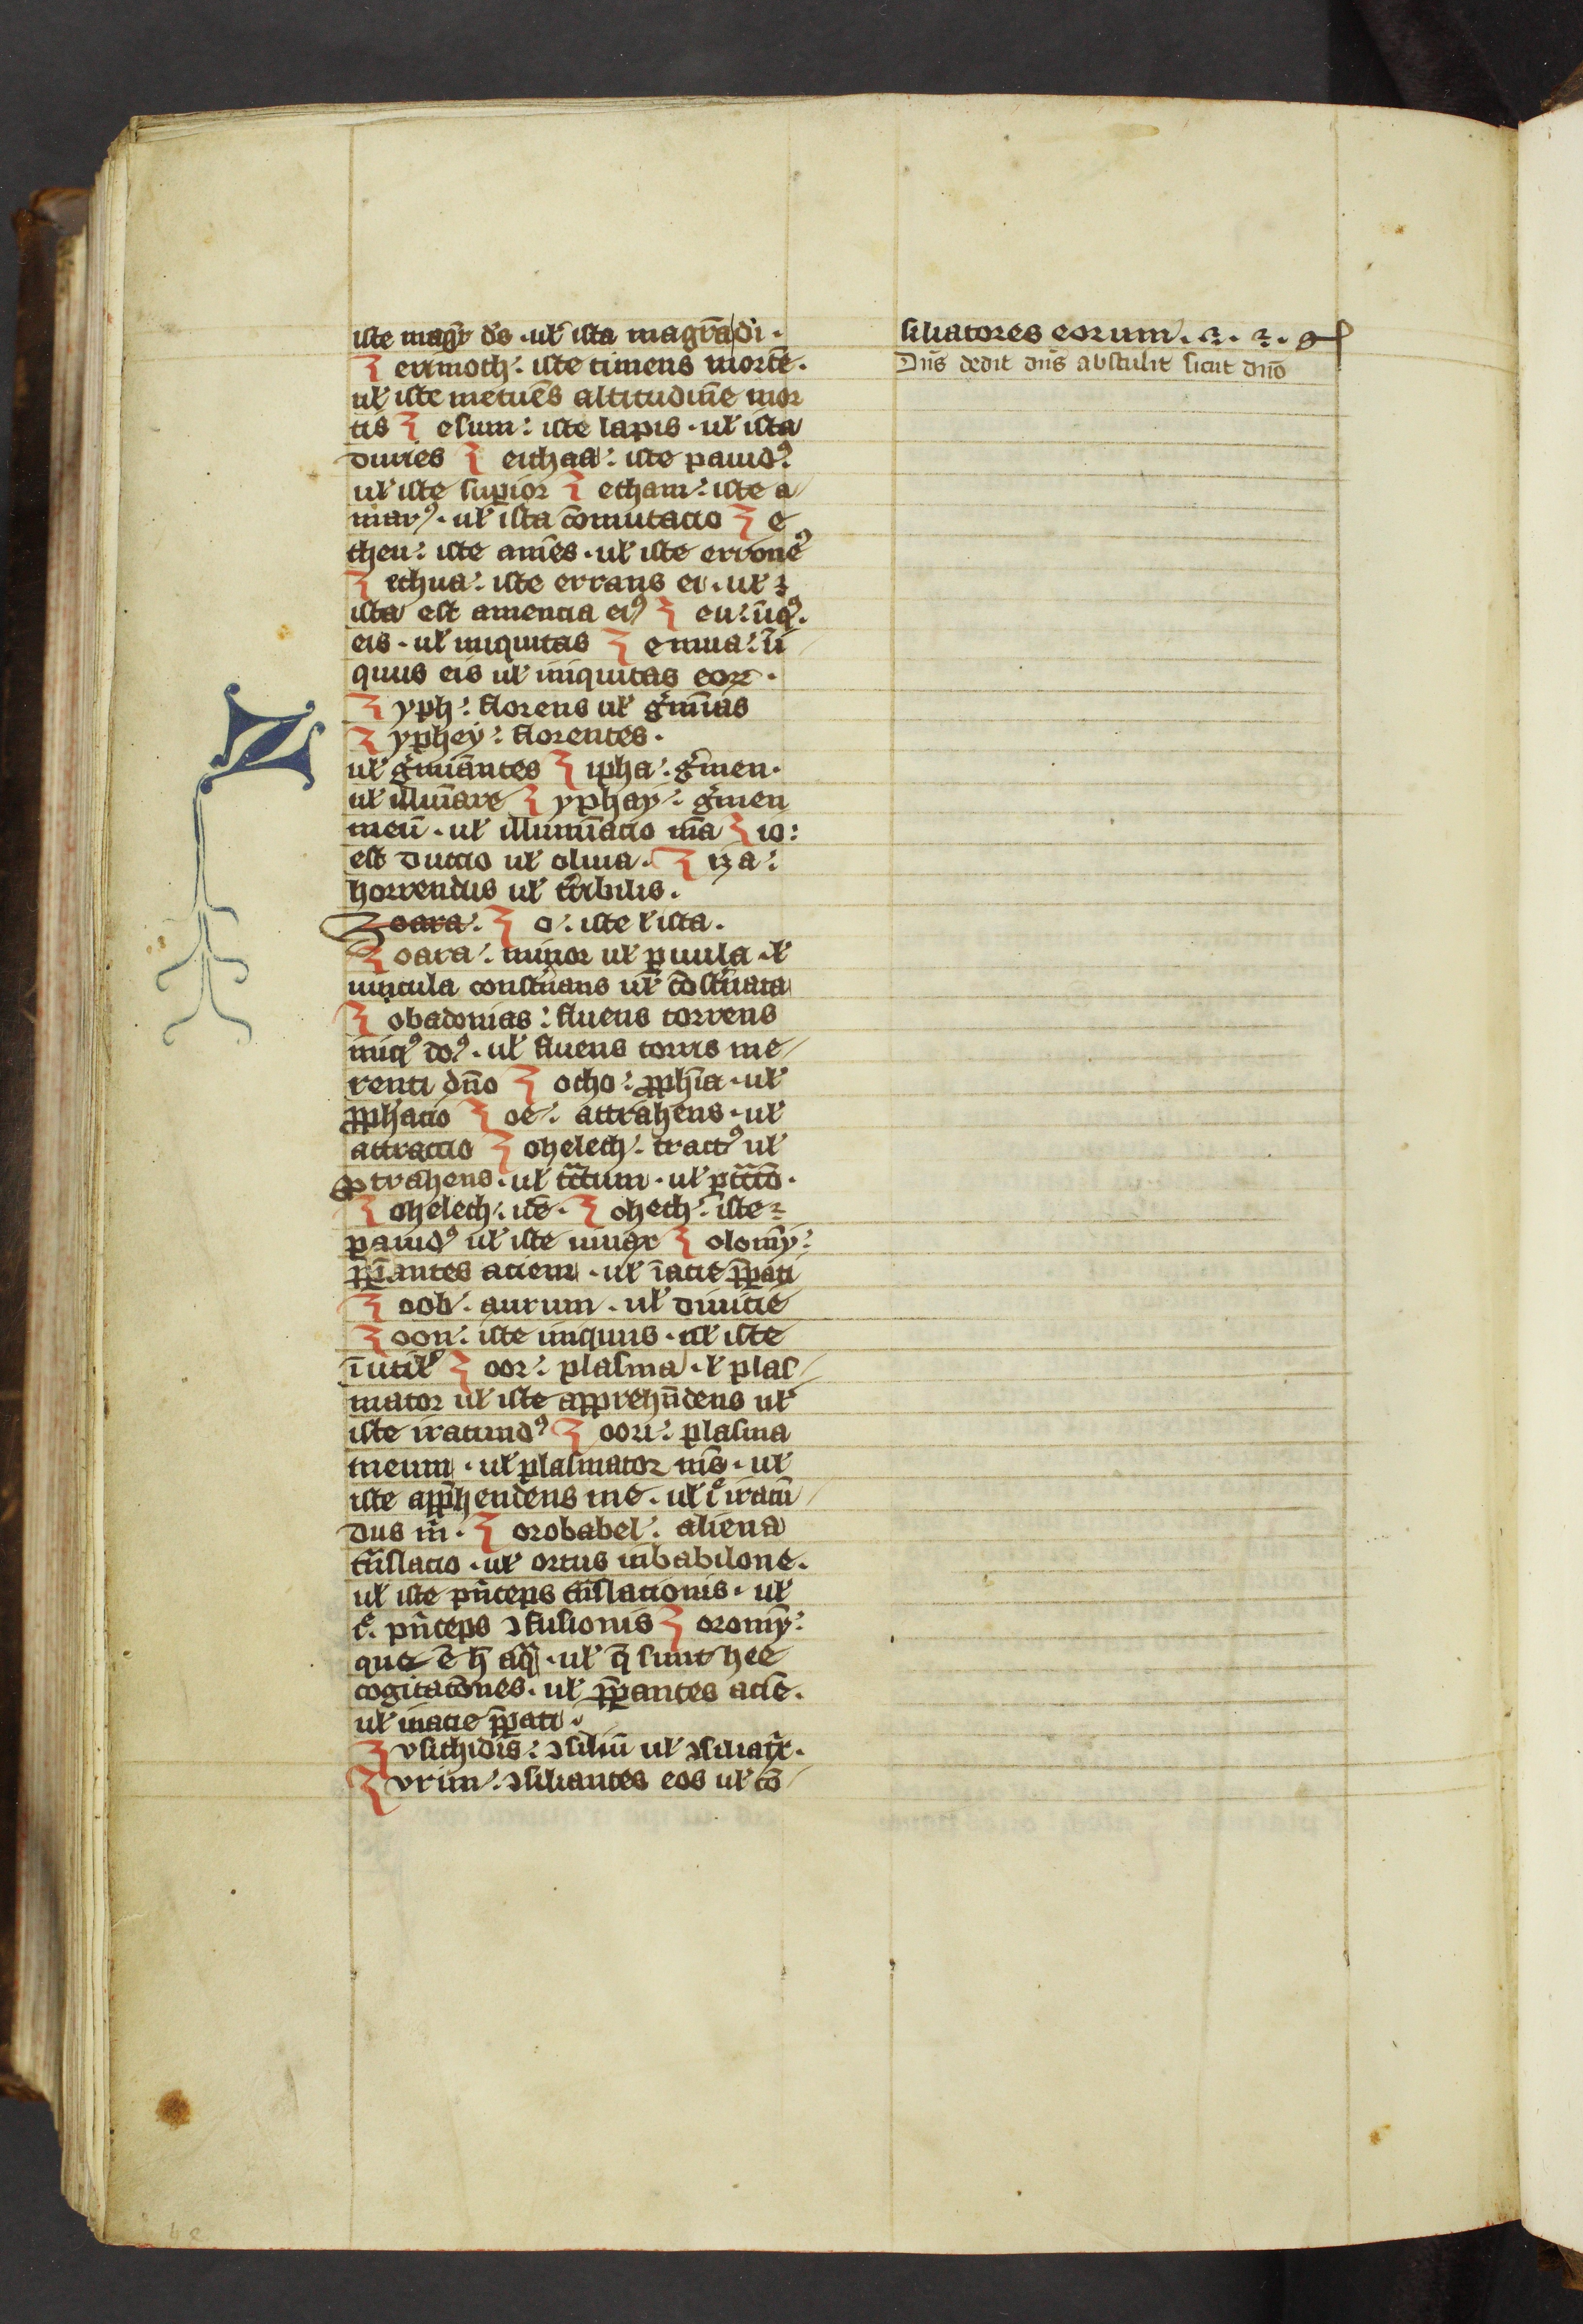 iste mag̅r d̅s · ul̅ ista magr̅a di ·
Z erimoth : iste timens morte̅ ·
ul̅ iste metue̅s altitudine̅ mor
tis Z esum : iste lapis · ul̅ ista
duries Z ethaa : iste pauidꝰ
ul̅ iste sup̅ior Z etham : iste a
marꝰ · ul̅ ista co̅mutacio Z e
theu : iste ame̅s · ul̅ iste erroneꝰ
Z ethua : iste errans ei · ul̅
ista est amencia eiꝰ Z eu : iniqꝰ ·
eis · ul̅ iniquitas Z emua : i̅i
quus eis ul̅ iniquitas eoꝝ ·
Z yph : florens ul̅ g̅mi̅as
Z yphey : florentes ·
ul̅ g̅mina̅ntes Z ipha : g̅men ·
ul̅ illuı̅are Z yphay : g̅men
meu̅ · ul̅ illumi̅acio m̅a Z io :
est ductio ul̅ oliua · Z iza :
horrendus ul̅ t̅ribilis ·
Zoara : Z o : iste l̅ ista ·
Z oara : minor ul̅ p̅uula · l̅
uincula const̅nans ul̅ co̅st̅nata
Z obadonias : fluens torrens
iniqꝰ doꝰ · ul̅ fluens torris me
renti dn̅o Z ocho : ꝓph̅ia · ul̅
ꝓph̅acio Z oe : attrahens · ul̅
attractio Z ohelech : tractꝰ ul̅
ꝓtrahens · ul̅ tc̅tum · ul̅ ptc̅co̅ ·
Z ohelech : ide̅ · Z oheth : iste
pauidꝰ ul̅ iste uiuax Z olomy̅ :
p̅p̅antes aciem · ul̅ i̅acie p̅pati
Z oob : aurum · ul̅ diuicie
Z oon : iste iniquus · ul̅ iste
i̅util̅ Z oor : plasma · l̅ plas
mator ul̅ iste appreh̅ndens ul̅
iste iracundꝰ Z oori : plasma
meum · ul̅ plasmator m̅s · ul̅
iste app̅hendens me · ul̅ t̅ iracu̅
dus m̅ · Z orobabel : aliena
t̅nslacio · ul̅ ortus in babilone ·
ul̅ iste p̅nceps t̅nslacionis · ul̅
t̅ · p̅nceps ꝯfusionis Z oromy̅ :
que e̅ h̅ aq̅ · ul̅ q̅ sunt hee
cogitaco̅nes · ul̅ p̅pantes acie̅ ·
ul̅ in acie p̅pati ·
Z usithidis̅ : ꝯsiliu̅ ul̅ ꝯsiliat̅r ·
Z urim : ꝯsiliantes eos ul̅ co̅
siliatores eorum ·
Dn̅s dedit dn̅s abstulit sicut dn̅o